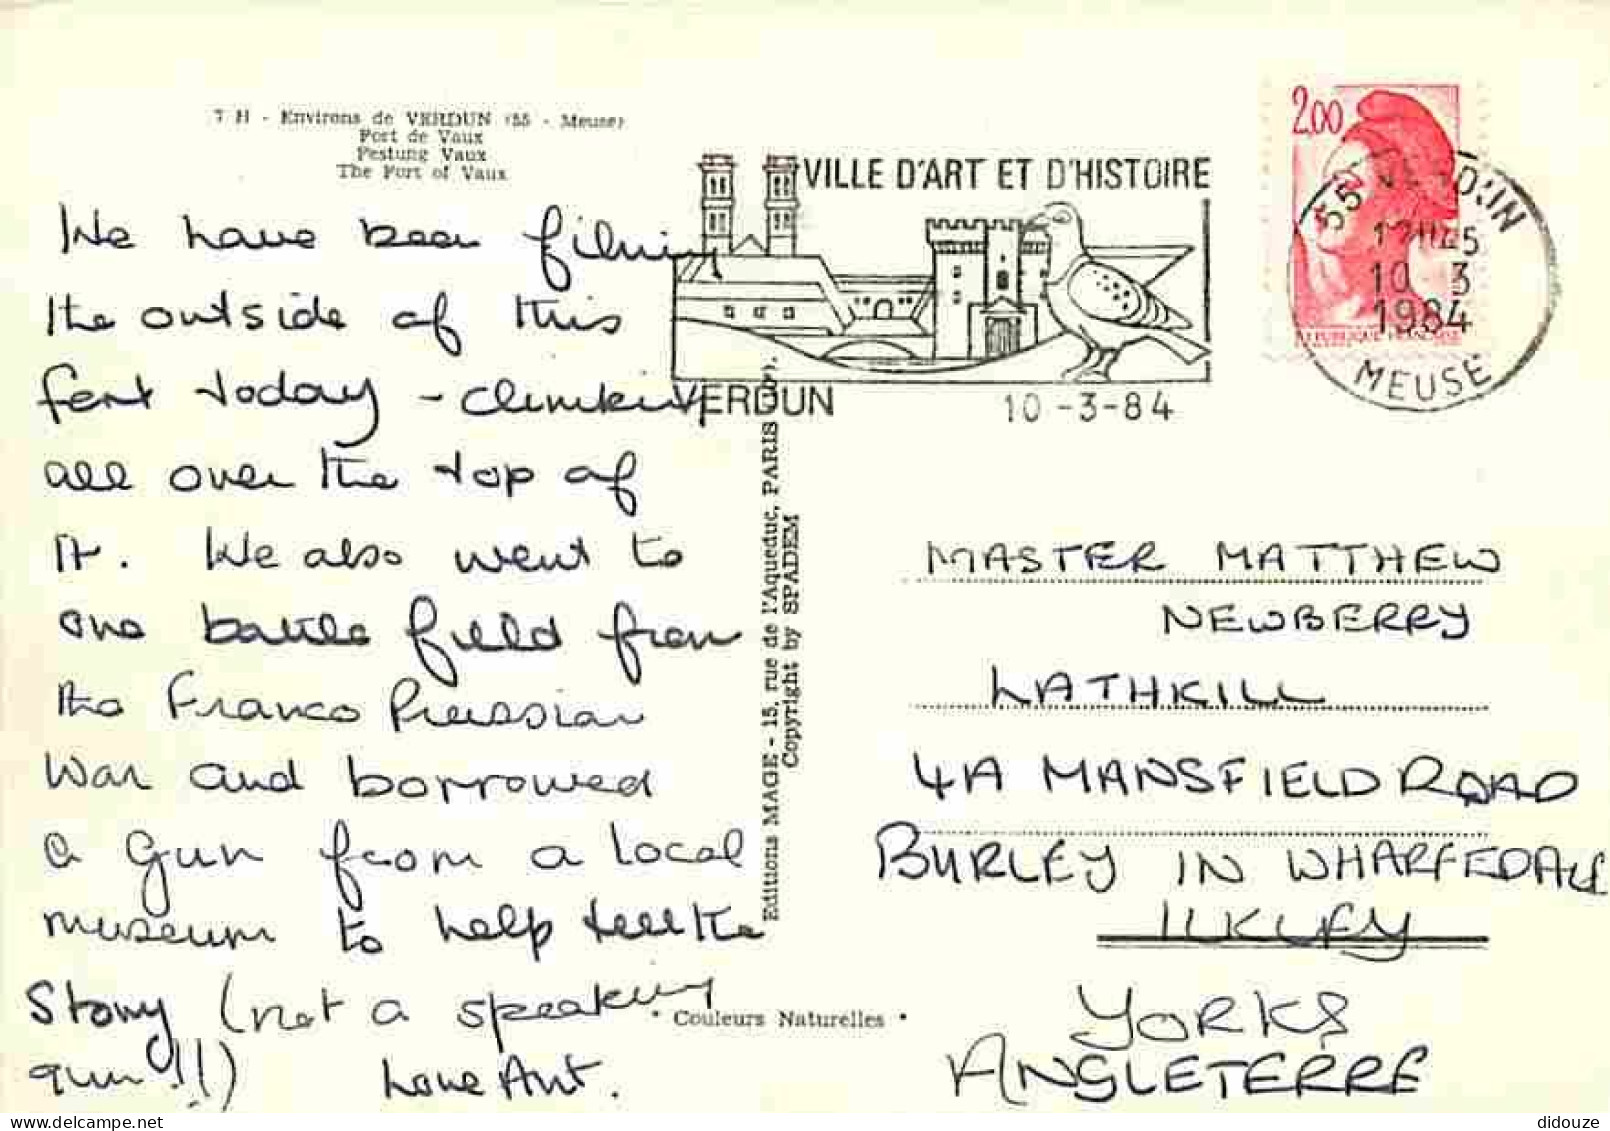 7 H - Environs de VERDUN (55 - Meuse)
Fort de Vaux
Festung Vaux
The Fort of Vaux
We have been filming
the outside of this
fort today - climbing
all over the top of
it. We also went to
one battle field from
the Franco Prussian
War and borrowed
a gun from a local
museum to help tell the
story (not a speaking
gun!!!) Love Ant.
VILLE D'ART ET D'HISTOIRE
VERDUN
10-3-84
2,00
RÉPUBLIQUE FRANÇAISE
55 VERDUN
10 3
1984
MEUSE
Editions MAGE - 15, rue de l'Aqueduc, PARIS
Copyright by SPADEM
MASTER MATTHEW
NEWBERRY
LATHKILL
4A MANSFIELD ROAD
BURLEY IN WHARFEDALE
ILKLEY
YORKS
ANGLETERRE
• Couleurs Naturelles •
didouze